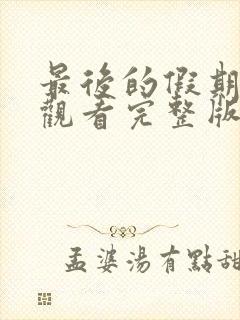 最後的假期
觀看完整版
孟婆湯有點甜